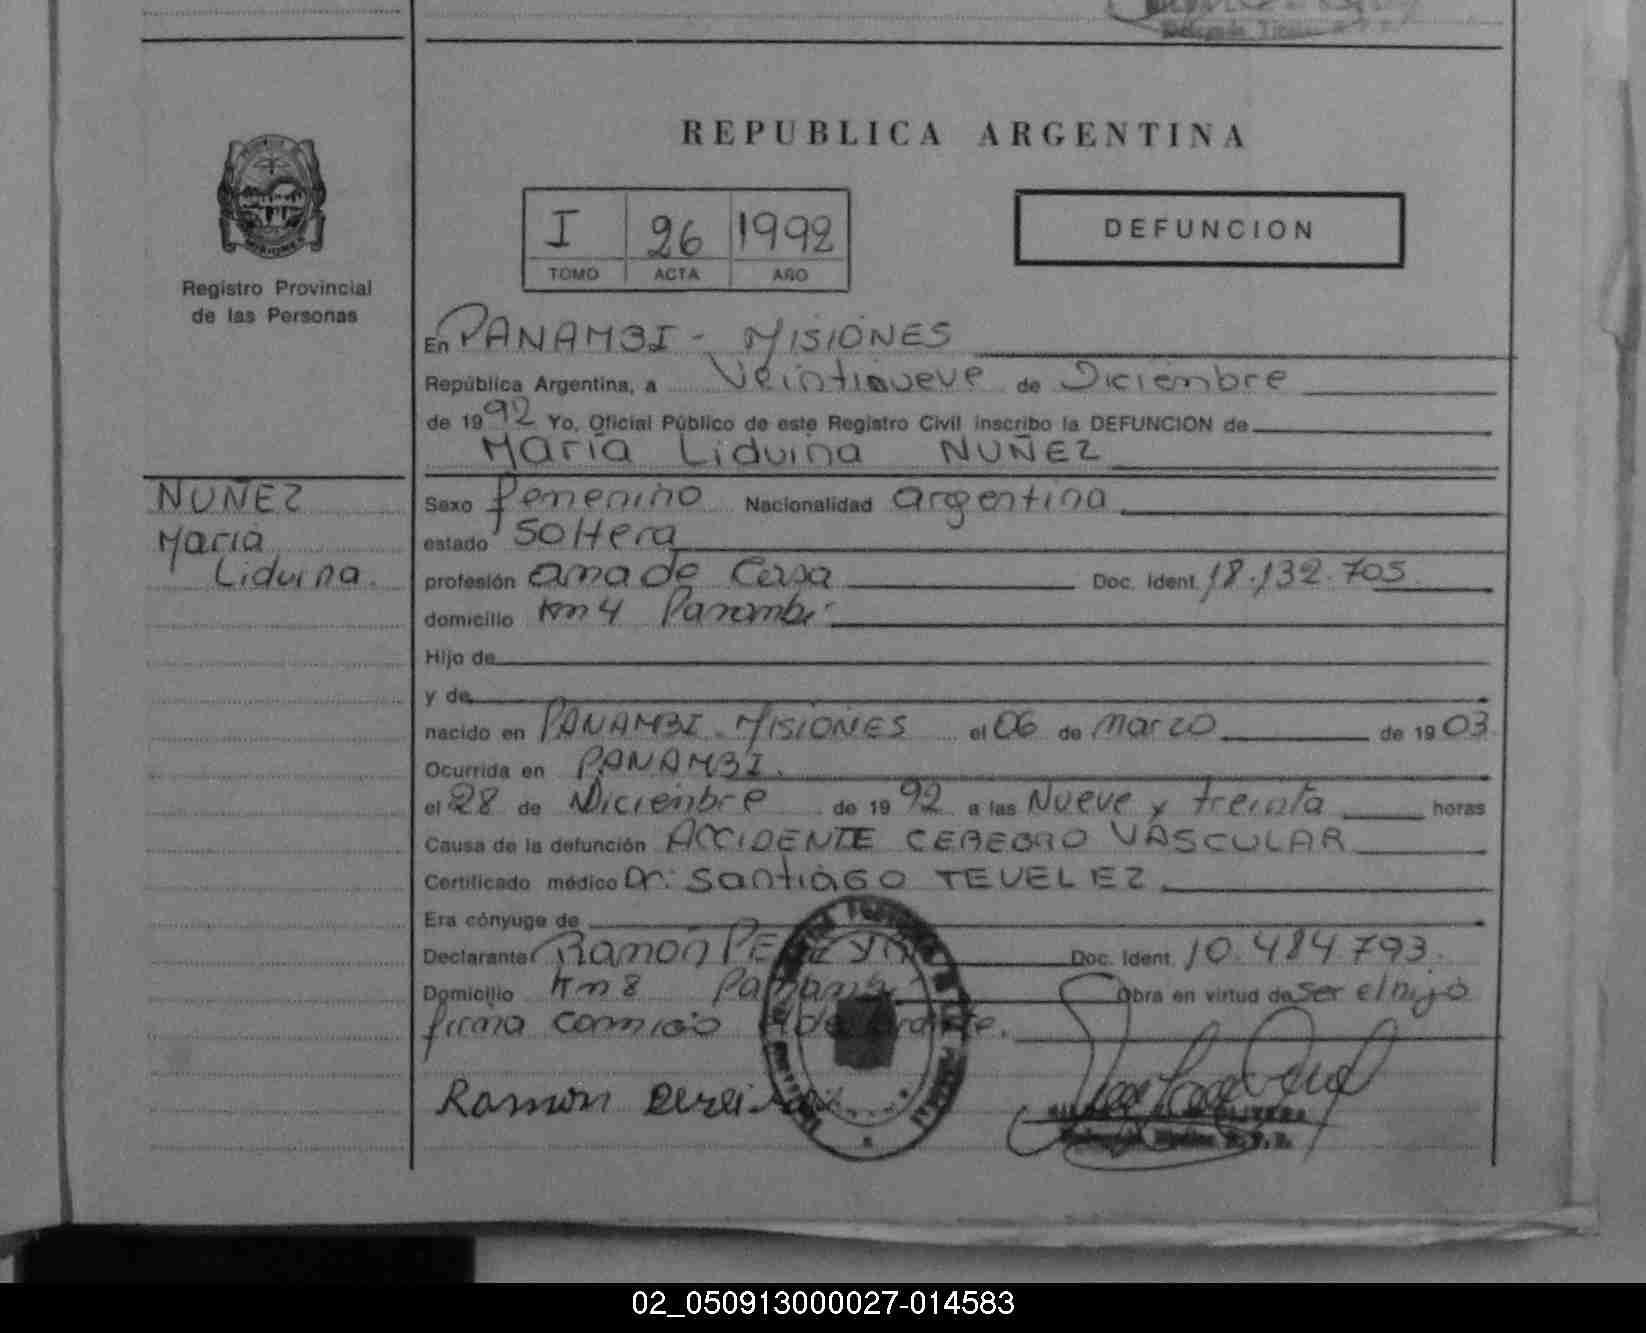 REPUBLICA ARGENTINA
I 26 1992
TOMO ACTA AÑO
DEFUNCION
Registro Provincial
de las Personas
En PANAMBI - MISIONES
República Argentina, a Veintinueve de Diciembre
de 1992 Yo, Oficial Público de este Registro Civil inscribo la DEFUNCION de
María Liduina NUÑEZ
NUÑEZ
María
Liduina.
Sexo femenino Nacionalidad argentina
estado soltera
profesión ama de Casa Doc. Ident. 18.132.705
domicilio Km 4 Panambi
Hijo de
y de
nacido en PANAMBI - MISIONES el 06 de marzo de 1903
Ocurrida en PANAMBI.
el 28 de Diciembre de 1992 a las Nueve y treinta horas
Causa de la defunción ACCIDENTE CEREBRO VASCULAR
Certificado médico Dr. Santiago TEVELEZ
Era cónyuge de
Declarante Ramón Doc. Ident. 10.484.793.
Domicilio Km 8 Obra en virtud de ser el hijo
firma conmigo el declarante.
Ramon
02_050913000027-014583